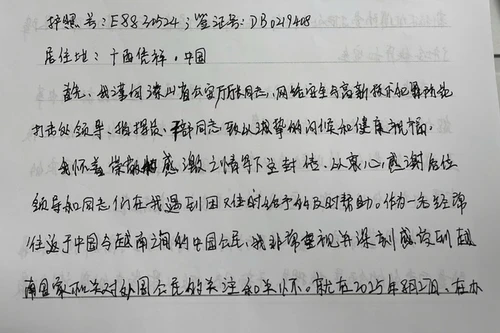 护照号：E8830524；签证号：DB0219408
居住地：广西凭祥，中国
首先，我谨向谅山省公安厅厅长同志，网络安全与高新技术犯罪预防
打击处领导、指挥员、干部同志致以诚挚的问候和健康祝福。
我怀着崇敬感激之情写下这封信，以衷心感谢各位
领导和同志们在我遇到困难时给予的及时帮助。作为一名经常
往返于中国与越南之间的中国公民，我非常重视并深刻感受到越
南国家机关对外国公民的关注和关怀。就在2025年8月2日，在办